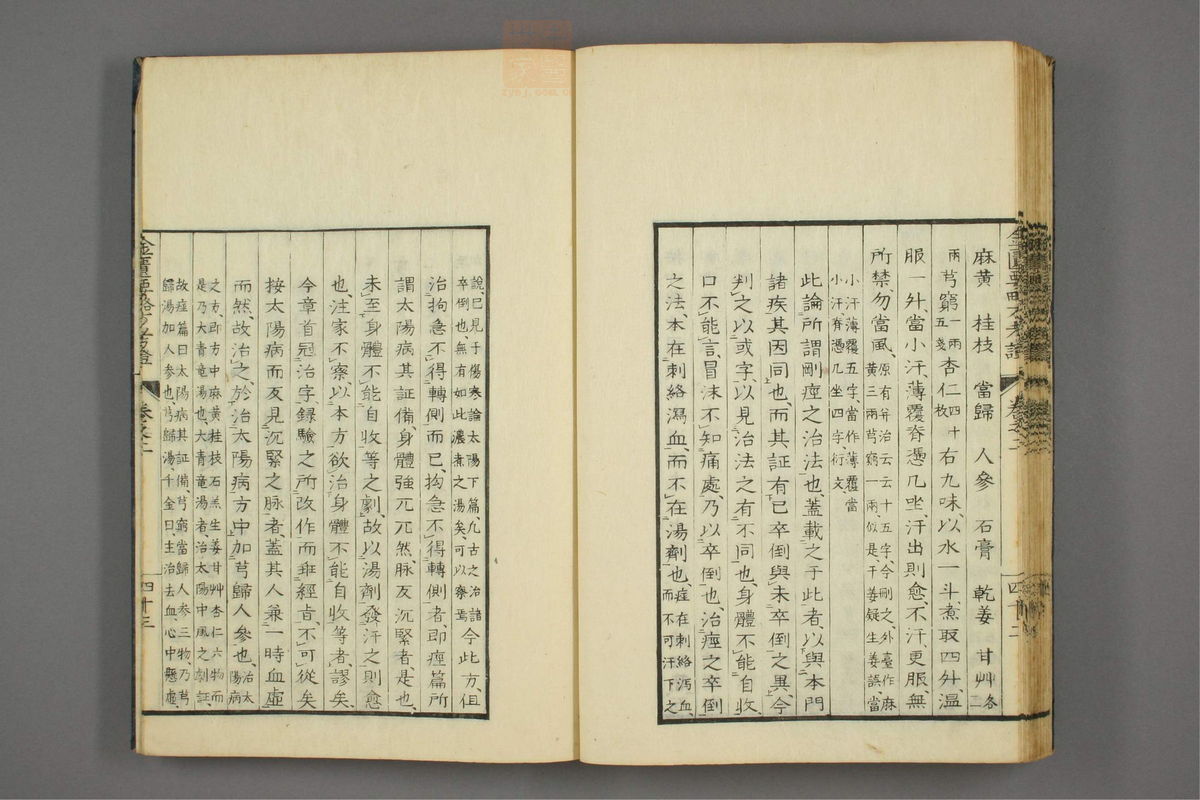 麻黄 桂枝 當歸 人參 石膏 乾姜 甘艸各二
兩芎藭一兩五戔杏仁四十枚右九味、以水一斗、煮取四升、温
服一升、當小汗、薄覆脊憑几坐、汗出則愈、不汗、更服、無
所禁勿當風、原有并治云云十五字今刪之、外臺作麻黄三兩芎藭一兩、似是干姜疑生姜誤、當
小汗薄覆五字、當作薄覆當小汗、脊憑几坐四字衍文
此論所謂剛痙之治法也、蓋載之于此者、以與本門
諸疾其因同也、而其証有已卒倒與未卒倒之異、今
判之以或字、以見治法之有不同也、身體不能自收、
口不能言、冒沫不知痛處、乃以卒倒也、治痙之卒倒
之法、本在刺絡瀉血、而不在湯劑也、痙在刺絡瀉血、而不可汗下之
說、已見于傷寒論太陽下篇、凡古之治諸卒倒也、無有如此濃煮之湯矣、可以察焉今此方、但
治拘急不得轉側而已、拘急不得轉側者、即痙篇所
謂太陽病其証備、身體強兀兀然、脉反沉緊者、是也、
未至身體不能自收等之劇、故以湯劑發汗之則愈
也、注家不察以本方欲治身體不能自收等者、謬矣、
今章首冠治字、録驗之所改作而乖經旨、不可從矣
按太陽病而反見沉緊之脉者、蓋其人兼一時血虛
而然、故治之、於治太陽病方中加芎歸人參也、治太陽病
之方、即方中麻黄桂枝石羔生姜甘艸杏仁六物而是乃大青竜湯也、大青竜湯者、治太陽中風之劇証、
故痙篇曰太陽病其証備、芎藭當歸人参三物、乃芎歸湯加人参也、芎歸湯、千金曰、主治去血、心中懸虛、
金匱要略方考證 卷之二 四十三